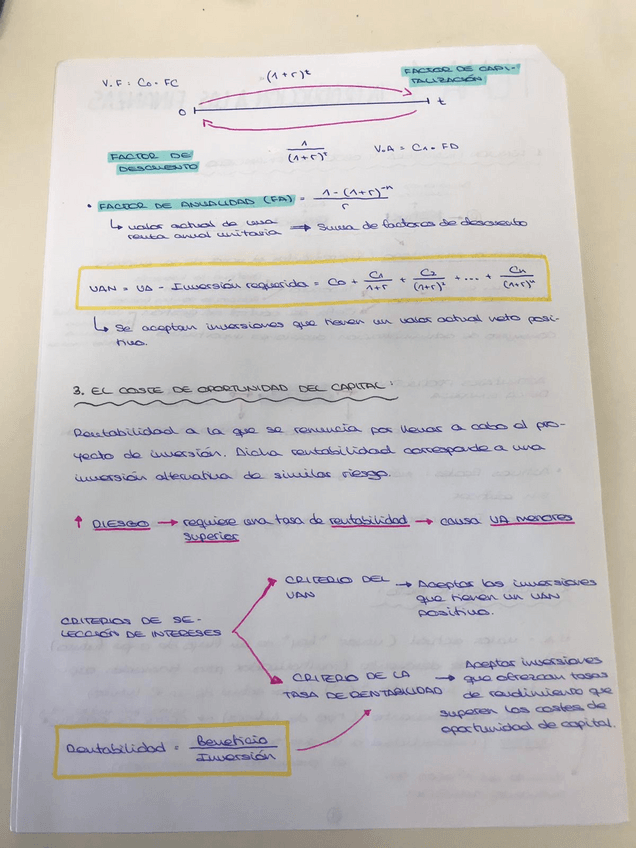 V.F = C0 · FC
(1+r)^t
FACTOR DE CAPI-
TALIZACIÓN
0
t
FACTOR DE
DESCUENTO
1/(1+r)^t
V.A = C1 · FD
• FACTOR DE ANUALIDAD (FA) = 1-(1+r)^-n / r
↳ valor actual de una
renta anual unitaria ⇒ Suma de factores de descuento
VAN = VA - Inversión requerida = C0 + C1/1+r + C2/(1+r)² + .... + Cn/(1+r)^n
↳ Se aceptan inversiones que tienen un valor actual neto posi-
tivo.
3. EL COSTE DE OPORTUNIDAD DEL CAPITAL:
Rentabilidad a la que se renuncia por llevar a cabo el pro-
yecto de inversión. Dicha rentabilidad corresponde a una
inversión alternativa de similar riesgo.
↑ RIESGO → requiere una tasa de rentabilidad → causa VA menores
superior
CRITERIOS DE SE-
LECCIÓN DE INTERESES
CRITERIO DEL
VAN
→ Aceptar las inversiones
que tienen un VAN
positivo.
CRITERIO DE LA
TASA DE RENTABILIDAD
→ Aceptar inversiones
que ofrezcan tasas
de rendimiento que
superen los costes de
oportunidad de capital.
Rentabilidad = Beneficio/Inversión